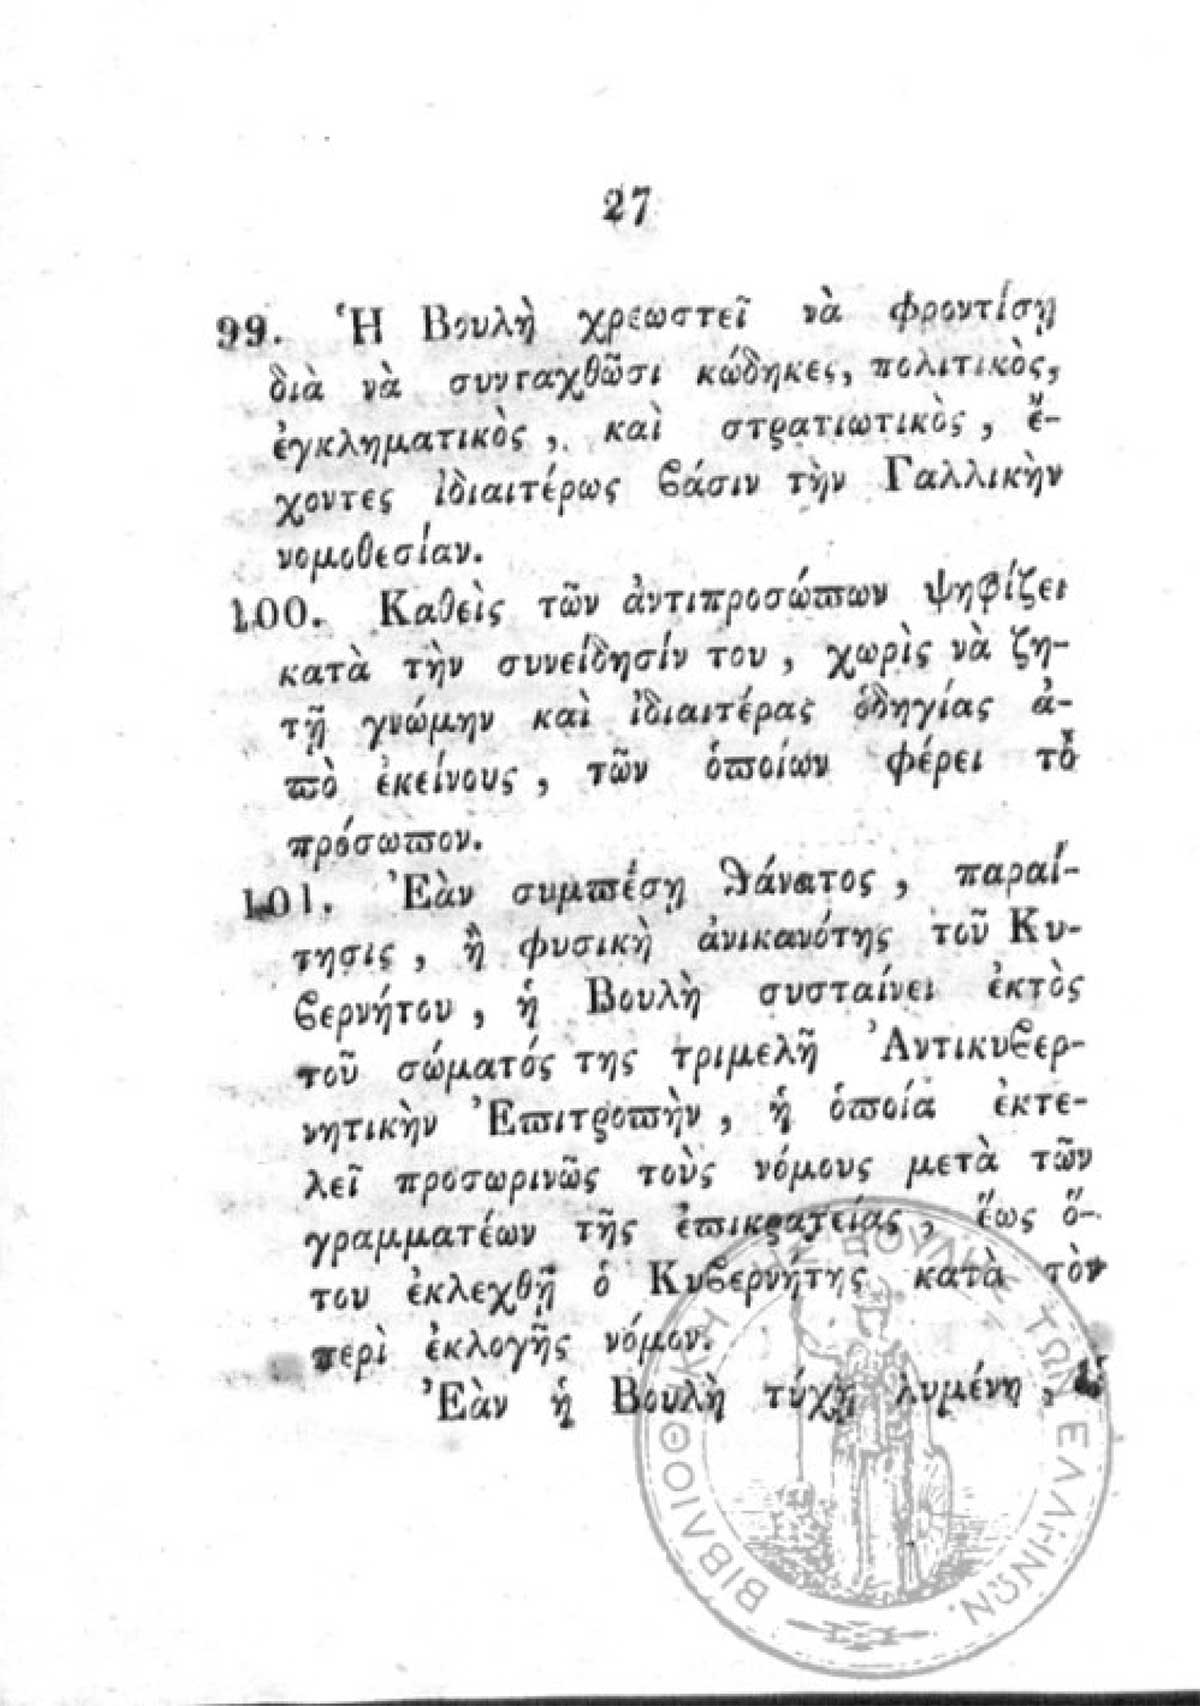 27
99. Ἡ Βουλὴ χρεωστεῖ νὰ φροντίσῃ
διὰ νὰ συνταχθῶσι κώδηκες, πολιτικὸς,
ἐγκληματικὸς, καὶ στρατιωτικὸς, ἔ-
χοντες ἰδιαιτέρως ϐάσιν τὴν Γαλλικὴν
νομοθεσίαν.
100. Καθεὶς τῶν ἀντιπροσώϖων ψηφίζει
κατὰ τὴν συνείδησίν του, χωρὶς νὰ ζη-
τῇ γνώμην καὶ ἰδιαιτέρας ὁδηγίας ἀ-
ϖὸ ἐκείνους, τῶν ὁϖοίων φέρει τὸ
πρόσωϖον.
101. Ἐὰν συμϖέσῃ ϑάνατος, παραί-
τησις, ἢ φυσικὴ ἀνικανότης τοῦ Κυ-
ϐερνήτου, ἡ Βουλὴ συσταίνει ἐκτὸς
τοῦ σώματός της τριμελῆ Ἀντικυϐερ-
νητικὴν Ἐϖιτροϖὴν, ἡ ὁϖοία ἐκτε-
λεῖ προσωρινῶς τοὺς νόμους μετὰ τῶν
γραμματέων τῆς ἐϖικρατείας, ἕως ὅ-
του ἐκλεχθῇ ὁ Κυϐερνήτης κατὰ τὸν
περὶ ἐκλογῆς νόμον.
Ἐὰν ἡ Βουλὴ τύχῃ λυμένη,
ΒΙΒΛΙΟΘΗΚΗ ΤΗΣ ΒΟΥΛΗΣ ΤΩΝ ΕΛΛΗΝΩΝ.